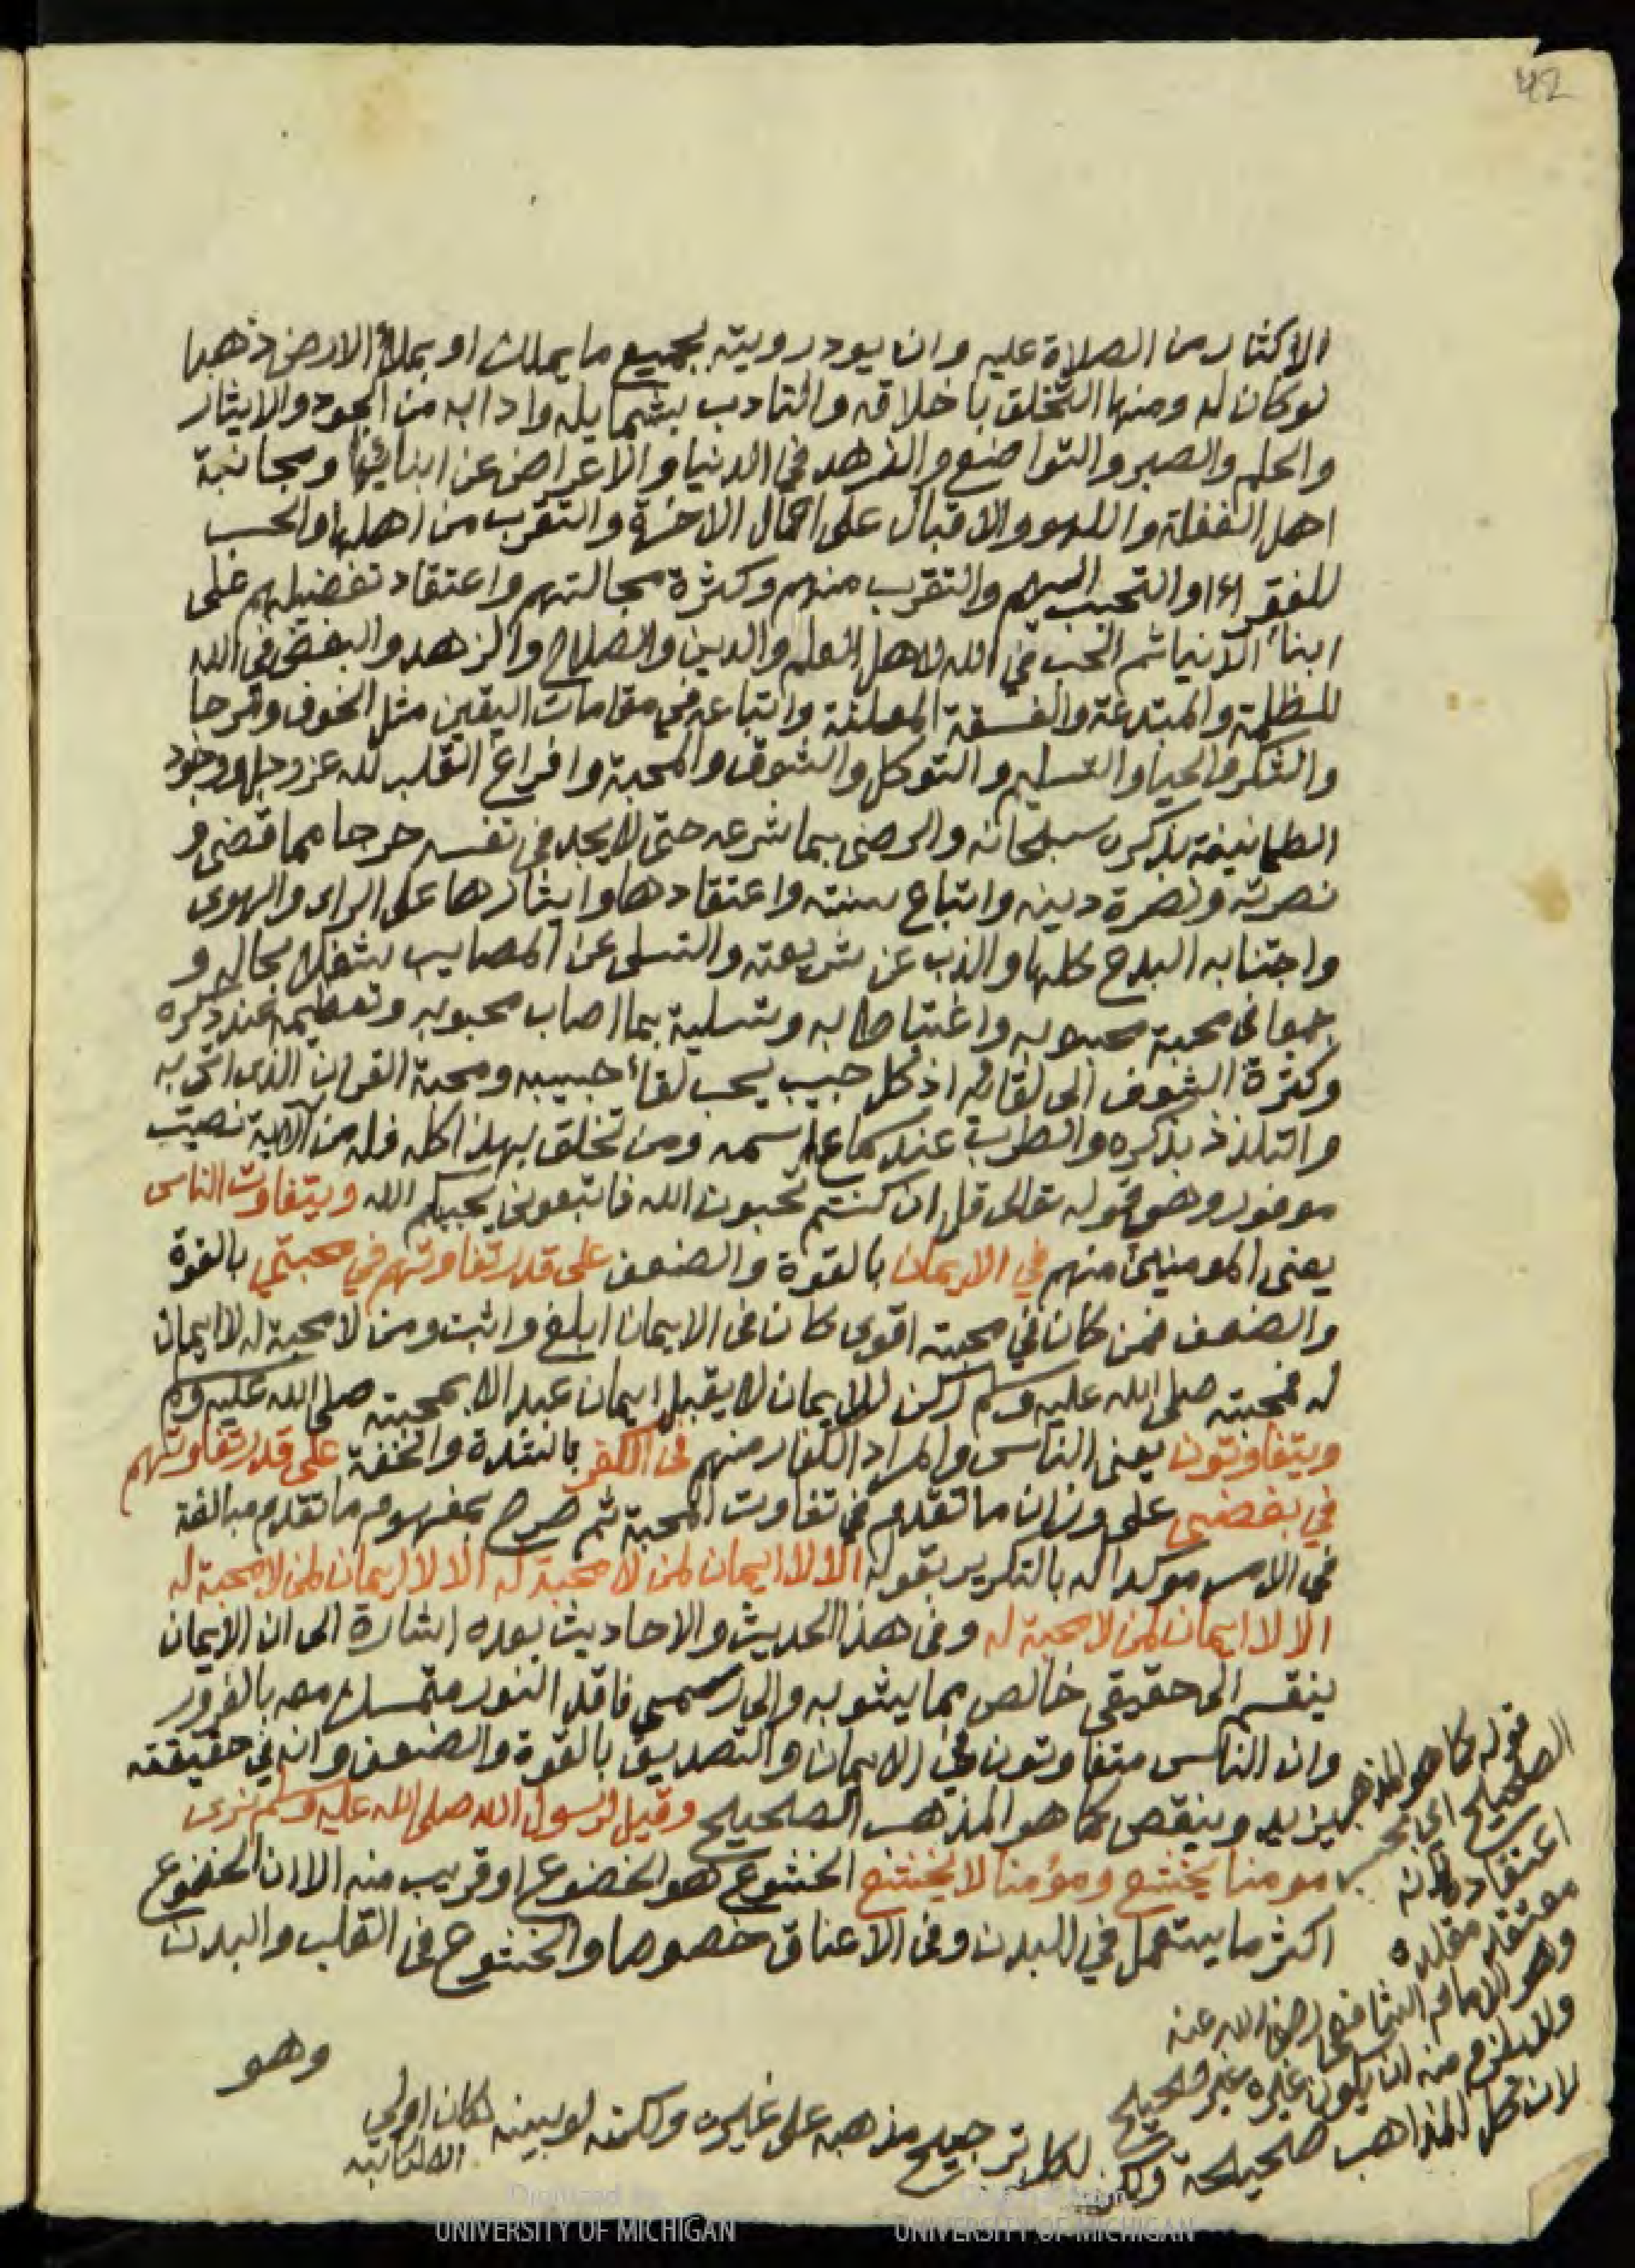 42
الاكثار من الصلاة عليه وان يود رويته بجميع ما يملك او بملأ الارض ذهبا
لو كان له ومنها التخلق باخلاقه والتادب بشمايله وادابه من الجود والايثار
والحلم والصبر والتواضع والزهد في الدنيا والاعراض عن ابنائها ومجانبة
اهل الغفلة واللهو والاقبال على اعمال الاخرة والتقرب من اهلها والحب
للفقراء والتحبب اليهم والتقرب منهم وكثرة مجالستهم واعتقاد تفضيلهم على
ابنأ الدنيا ثم الحب في الله لاهل العلم والدين والصلاح والزهد والبغض في الله
للظلمة والمبتدعة والفسقة المعلنة واتباعه في مقامات اليقين مثل الخوف والرجا
والشكر والحيا والتسليم والتوكل والشوق والمحبة وافراغ القلب لله عز وجل ووجود
الطمانينة بذكره سبحانه والرضى بما شرعه حتى لا يجد في نفسه حرجا مما قضى و
نصرته ونصرة دينه واتباع سنته واعتقادها وايثارها على الراى والهوى
واجتنابه البدع كلها والذب عن شريعته والتسلى عن المصايب بشغله بحاله و
جمعا فى محبة محبوبه واغتباطا به وتسلية بما اصاب محبوبه وتعظيمه عند ذكره
وكثرة الشوق الى لقائه اذ كل حبيب يحب لقأ حبيبه ومحبة القران الذى اتى به
والتلذذ بذكره والطرب عند سماع اسمه ومن تخلق بهذا كله فله من الاية نصيب
موفور وهى قوله تعالى قل ان كنتم تحبون الله فاتبعونى يحببكم الله ويتفاوت الناس
يعنى المومنين منهم في الايمان بالقوة والضعف على قدر تفاوتهم في محبتي بالقوة
والضعف فمن كان في محبته اقوى كان فى الايمان ابلغ واثبت ومن لا محبة له لا ايمان
له فمحبته صلى الله عليه وسلم ركن للايمان لا يقبل ايمان عبد الا بمحبته صلى الله عليه وسلم
ويتفاوتون يعنى الناس والمراد الكفار منهم فى الكفر بالشدة والخفة على قدر تفاوتهم
في بغضى على وزان ما تقدم في تفاوت المحبة ثم صرح بمفهوم ما تقدم مبالغة
في الامر موكدا له بالتكرير بقوله الا لا ايمان لمن لا محبة له الا لا ايمان لمن لا محبة له
الا لا ايمان لمن لا محبة له وفى هذا الحديث والاحاديث بعده اشارة الى ان الايمان
ينقسم الى حقيقى خالص مما يشوبه والي رسمى فاقد النور متمسك معه بالغرور
وان الناس متفاوتون في الايمان والتصديق بالقوة والضعف وانه في حقيقته
يزيد وينقص كما هو المذهب الصحيح وقيل لرسول الله صلى الله عليه وسلم نرى
مومنا يخشع ومؤمنا لا يخشع الخشوع هو الخضوع او قريب منه الا ان الخضوع
اكثر ما يستعمل في البدن وفى الاعناق خصوصا والخشوع فى القلب والبدن
وهو
قوله كما هو المذهب
الصحيح اى بحسب
اعتقاده لانه
معتقد مقلده
وهو الامام الشافعى رضى الله عنه
ولا يلزم منه ان يكون غيره غير صحيح
لان كل المذاهب صحيحة ولكن لكل ترجيح مذهبه على غيره ولكنه لو بينه لكان اولى
اه لكاتبه